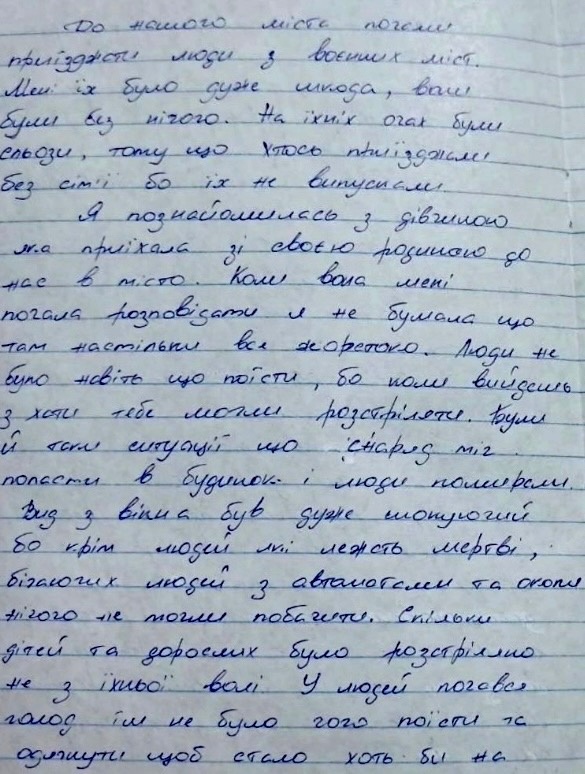 До нашого міста почали
приїзджати люди з воєнних міст.
Мені їх було дуже шкода, вони
були без нічого. На їхніх очах були
сльози, тому що хтось приїзджали
без сім'ї бо їх не випускали
Я познайомилась з дівчиною
яка приїхала зі своєю родиною до
нас в місто. Коли вона мені
почала розповідати я не думала що
там настільки все жорстоко. Люди не
було навіть що поїсти, бо коли вийдешь
з хати тебе могли розстріляти. Були
й таки ситуації що снаряд міг
попасти в будинок і люди помирали.
Вид з вікна був дуже шокуючий
бо крім людей які лежать мертві,
бігаючих людей з автоматами та окопи
нічого не могли побачити. Скільки
дітей та дорослих було розстріляно
не з їхньої волі У людей почався
голод їм не було чого поїсти та
одягнути щоб стало хоть би на